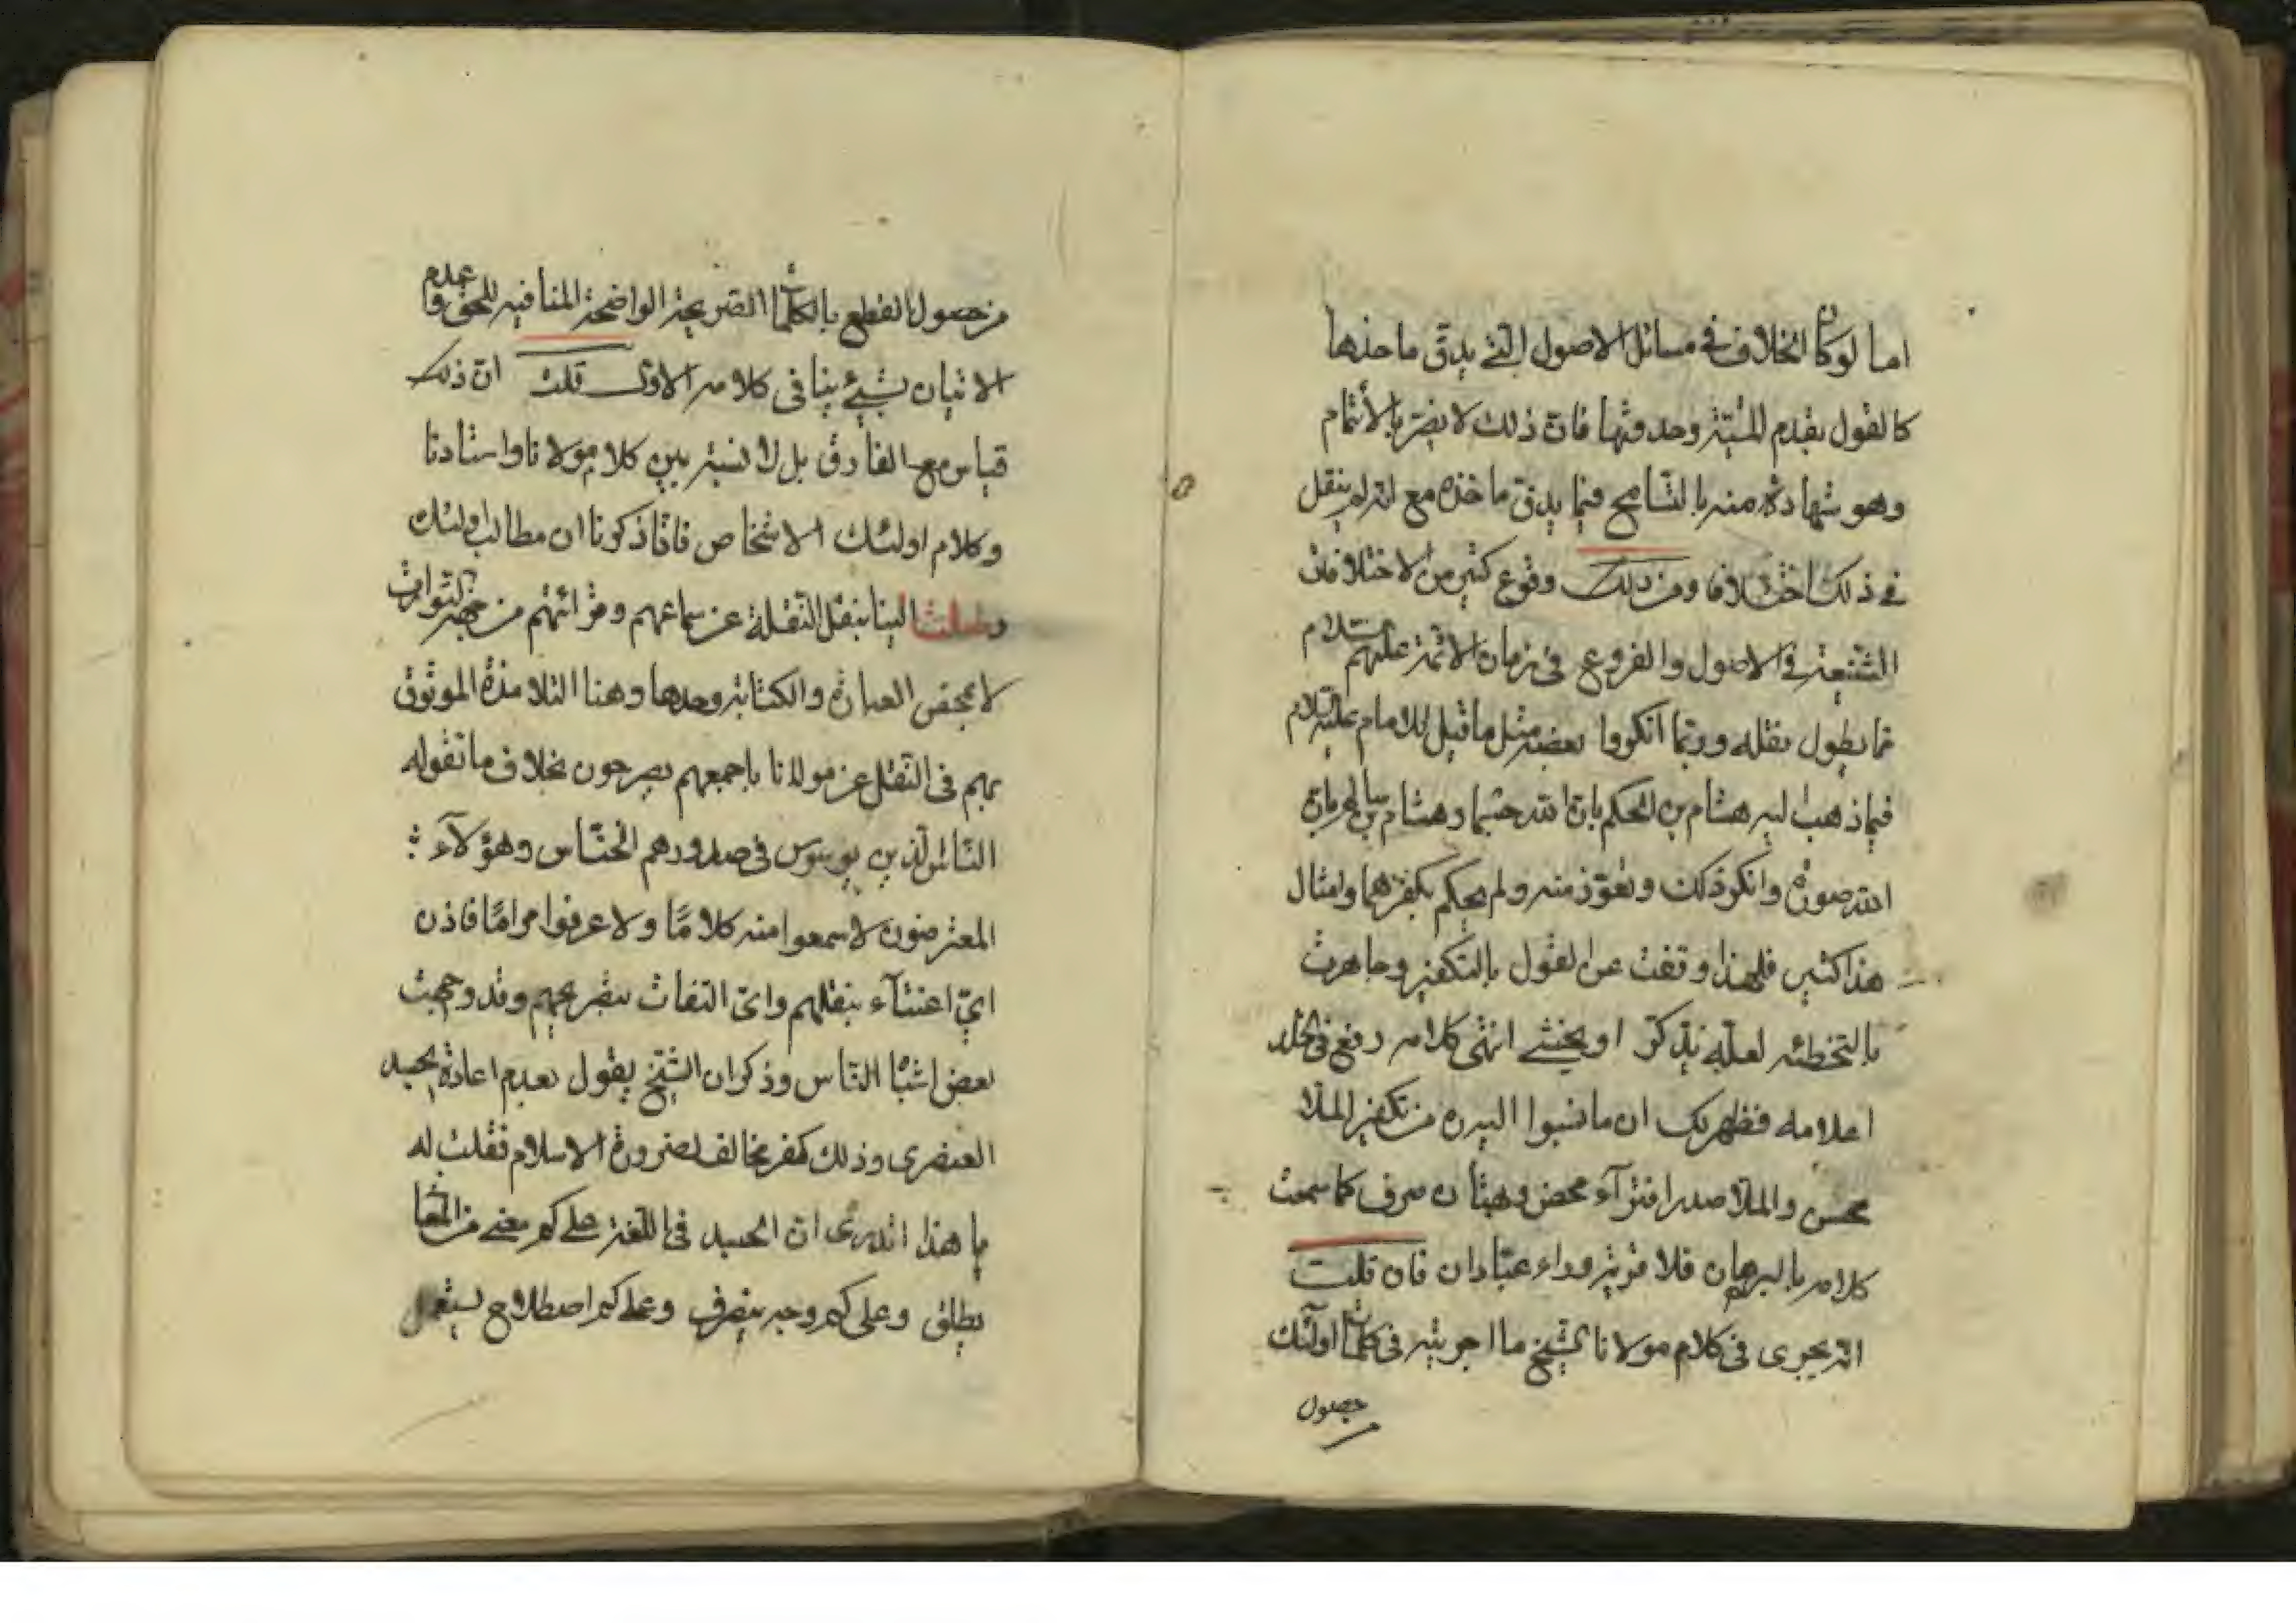 اما لو كان الخلاف في مسائل الاصول التي يدق ماخذها
كالقول بقدم المشية وحدوثها فان ذلك لا يضر بالأتمام
وهو شهادة منه بالتسامح فيما يدق ماخذه مع انه لم ينقل
في ذلك اختلافا ومن ذلك وقوع كثير من الاختلافات
الشيعة في الاصول والفروع في زمان الائمة عليهم السلام
مما يطول نقله وربما انكروا بعضه مثل ما قيل للامام عليه السلام
فيما ذهب اليه هشام بن الحكم بان الله جسما وهشام بن سالم بان
الله صورة وانكر ذلك وتعوذ منه ولم يحكم بكفرهما وامثال
هذا كثير فلهذا وقفت عن القول بالتكفير وجاهرت
بالتخطئه لعله يتذكر او يخشى انتهى كلامه رفع في الخلد
اعلامه فظهر لك ان ما نسبوا اليه من تكفير الملا
محسن والملا صدرا افتراء محض وبهتان صرف كما سمعت
كلامه بالبرهان فلا قرية وراء عبادان فان قلت
انه يجري في كلام مولانا الشيخ ما اجريته في كلمات اولئك
من حصول
من حصول القطع بالكلمات الصريحة الواضحة المنافيه للحق وعدم
الاتيان بشيء ينافي كلامه الاول قلت ان ذلك
قياس مع الفارق بل لا نسبة بين كلام مولانا واستادنا
وكلام اولئك الاشخاص فانا ذكرنا ان مطالب اولئك
وصلت الينا بنقل النقلة عن سماعهم وقرائتهم من جهة التواتر
لا بمحض العبارة والكتابة وحدها وهنا التلامذة الموثوق
بهم في النقل عن مولانا باجمعهم يصرحون بخلاف ما تقوله
الناس الذين يوسوس في صدورهم الخناس وهؤلاء
المعترضون لا سمعوا منه كلامًا ولا عرفوا مرامًا فاذن
اي اعتناء بنقلهم واي التفات بتصريحهم وقد وجهت
بعض اشباه الناس وذكر ان الشيخ يقول بعدم اعادة الجسد
العنصري وذلك كفر مخالف لضرورة الاسلام فقلت له
يا هذا اتدري ان الجسد في اللغة على كم معنى من المعاني
يطلق وعلى كم وجه يتصرف وعلى كم اصطلاح يستعمل